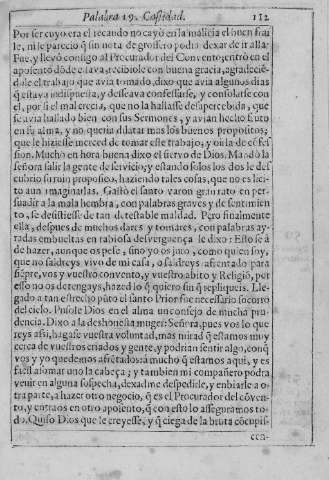 Palabra 19. Castidad. 112
Por ser cuyo era el recaudo no cayò en la malicia el buen frai
le, ni le parecio q̃ sin nota de grosero podia dexar de ir alla:
Fue, y llevò consigo al Procurador del Convento; entrò en el
aposento dõde estava, recibiole con buena gracia, agradecié-
dole el trabajo que avia tomado, dixo que avia algunos dias
q̃ estava indispuesta, y desseava confessarse, y consolarse con
el, por si el mal crecia, que no la hallasse desapercebida, que
se avia hallado bien con sus Sermones, y avian hecho fruto
en su alma, y no queria dilatar mas los buenos propositos;
que le hiziesse merced de tomar este trabajo, y oirla de cõfes
sion. Mucho en hora buena dixo el siervo de Dios. Mandò la
señora salir la gente de servicio; y estando solos los dos le des
cubriò su ruin proposito, haziendo tales cosas, que no es li
cito aun imaginarlas. Gastò el santo varon gran rato en per-
suadir a la mala hembra, con palabras graves y de sentimien
to, se desistiesse de tan detestable maldad. Pero finalmente
ella, despues de muchos dares y tomares, con palabras ay-
radas embueltas en rabiosa desverguença le dixo: Esto se à
de hazer, aunque os pese, sino yo os juro, como quien soy,
que no saldreys vivo de mi casa, o saldreys afrentado para
siẽpre, vos y vuestro convento, y vuestro abito y Religiõ, por
esso no os detengays, hazed lo q̃ quiero sin q̃ repliqueis. Lle-
gado a tan estrecho pũto el santo Prior fue necessario socorro
del cielo. Pusole Dios en el alma un consejo de mucha pru-
dencia. Dixo a la deshonesta muger: Señora, pues vos lo que
reys assi, hagase vuestra voluntad, mas mirad q̃ estamos muy
cerca de vuestros criados y gente, y podrian sentir algo, conq̃
vos y yo quedemos afrẽtados; à mucho q̃ estamos aqui, y es
facil assomar uno la cabeça; y tambien mi compañero podra
venir en alguna sospecha, dexadme despedirle, y enbiarle a o
tra parte, a hazer otro negocio, q̃ es el Procurador del cõven-
to, y entraos en otro aposento, q̃ con esto lo asseguramos to-
do. Quiso Dios que le creyesse, y q̃ ciega de la bruta cõcupis-
cen-